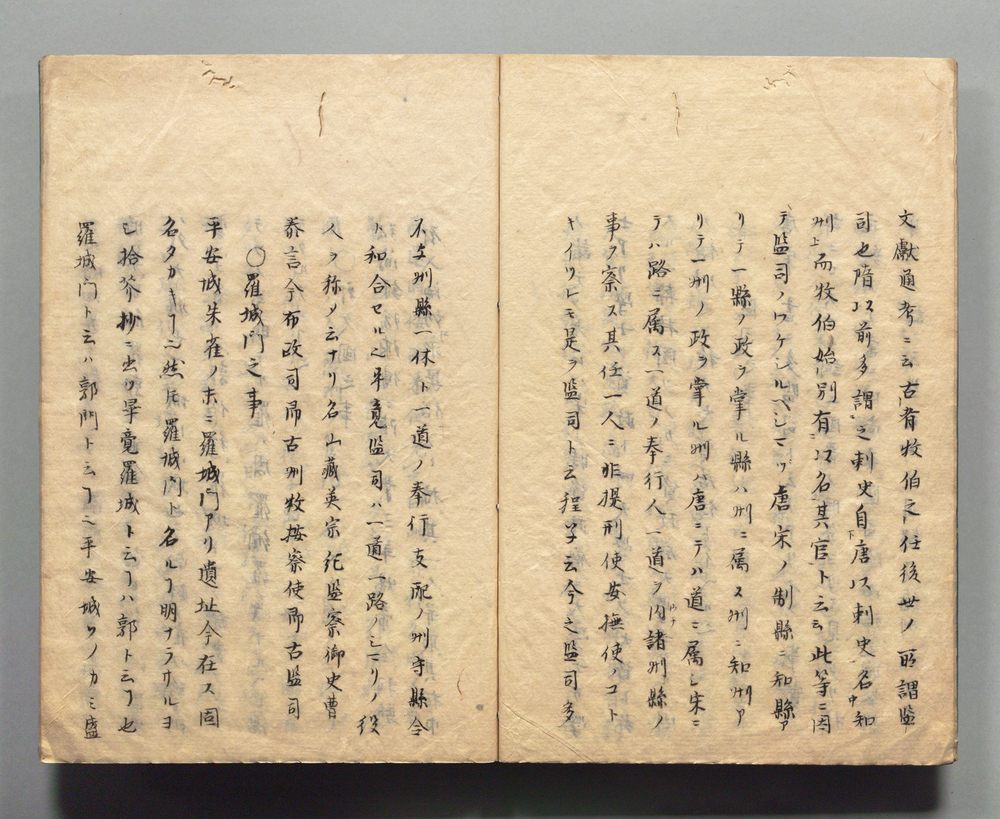 文獻通考ニ云古有牧伯之任後世ノ所謂監
司也隋以前多謂之刺史自唐以刺史名知
州上而牧伯始別有以名其官ト云云此等ニ因
テ監司ノワケシルベシ唐宋ノ制縣ニ知縣ア
リテ一縣ノ政ヲ掌ル縣ハ州ニ属ス州ニ知州ア
リテ一州ノ政ヲ掌ル州ハ唐ニテハ道ニ属シ宋ニ
テハ路ニ属ス一道ノ奉行人一道ヲ内諸州縣ノ
事ヲ察ス其任一人ニ非提刑使安撫使ノコト
キイツレモ是ヲ監司ト云程子云今之監司多
不與州縣一体ト一道ノ奉行支配ノ州守縣令
ト和合セル之畢竟監司ハ一道一路ノシマリノ役
人ヲ称メ云ナリ名山藏英宗紀監察御史曹
泰言今布政司即古州牧按察使即古監司
〇羅城門之事
平安城朱雀ノ末ニ羅城門アリ遺址今在ス因
名タカキヿ之然ㇳモ羅城門ト名ルヿ明ナラサルヨ
シ拾芥抄ニ出ツ畢竟羅城ト云ヿハ郭ト云ヿ也
羅城門ト云ハ郭門ト云ヿ之平安城ツノカミ盛